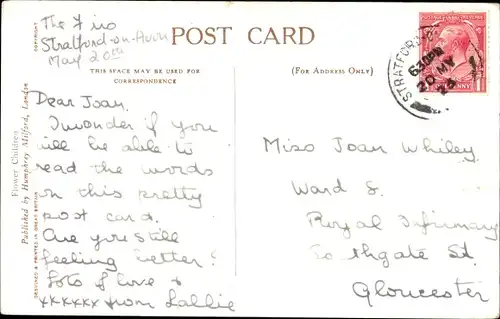 The Firs
Stratford-on-Avon
May 20th
POST CARD
THIS SPACE MAY BE USED FOR
CORRESPONDENCE
(FOR ADDRESS ONLY)
Dear Joan.
I wonder if you
will be able to
read the words
on this pretty
post card.
Are you still
feeling better?
Lots of love &
xxxxxx from Lallie
Miss Joan Whiley
Ward 8.
Royal Infirmary
Southgate St.
Gloucester
COPYRIGHT
Flower Children
Published by Humphrey Milford, London
DESIGNED & PRINTED IN GREAT BRITAIN
STRATFORD
6 30 PM
20 MY
23